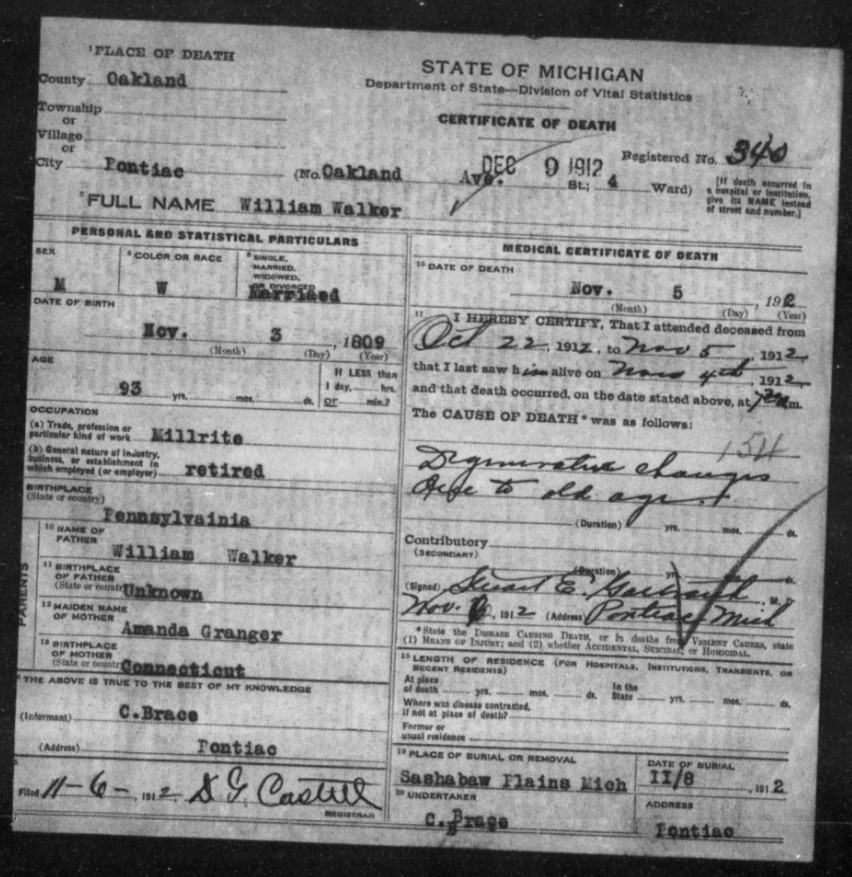 ¹PLACE OF DEATH
County Oakland
Township
or
Village
or
City Pontiac (No. Oakland Ave. St.; 4 Ward)
STATE OF MICHIGAN
Department of State—Division of Vital Statistics
CERTIFICATE OF DEATH
DEC 9 1912
Registered No. 340
[If death occurred in
a hospital or institution,
give its NAME instead
of street and number.]
²FULL NAME William Walker
PERSONAL AND STATISTICAL PARTICULARS
SEX
M
⁴ COLOR OR RACE
W
⁵ SINGLE,
MARRIED,
WIDOWED,
OR DIVORCED
Marriaed
DATE OF BIRTH
Nov. 3, 1809
(Month) (Day) (Year)
AGE
93 yrs. mos. ds.
If LESS than
1 day, hrs.
or min.?
OCCUPATION
(a) Trade, profession or
particular kind of work Millrite
(b) General nature of industry,
business, or establishment in
which employed (or employer) retired
BIRTHPLACE
(State or country)
Pennsylvainia
PARENTS
¹⁰ NAME OF
FATHER
William Walker
¹¹ BIRTHPLACE
OF FATHER
(State or country) Unknown
¹² MAIDEN NAME
OF MOTHER
Amanda Granger
¹³ BIRTHPLACE
OF MOTHER
(State or country) Connecticut
THE ABOVE IS TRUE TO THE BEST OF MY KNOWLEDGE
(Informant) C.Brace
(Address) Pontiac
Filed 11-6-, 1912
REGISTRAR
MEDICAL CERTIFICATE OF DEATH
¹⁶ DATE OF DEATH
Nov. 5, 1912
(Month) (Day) (Year)
¹⁷ I HEREBY CERTIFY, That I attended deceased from
Oct 22, 1912, to Nov 5, 1912,
that I last saw him alive on Nov 4th, 1912,
and that death occurred, on the date stated above, at 7 m.
The CAUSE OF DEATH* was as follows:
154
Degenerative changes
due to old age.
(Duration) yrs. mos. ds.
Contributory
(SECONDARY)
(Duration) yrs. mos. ds.
(Signed) Stuart E. Galbraith, M. D.
Nov. 6, 1912 (Address) Pontiac Mich
*State the DISEASE CAUSING DEATH, or in deaths from VIOLENT CAUSES, state
(1) MEANS OF INJURY; and (2) whether ACCIDENTAL, SUICIDAL, or HOMICIDAL.
¹⁸ LENGTH OF RESIDENCE (FOR HOSPITALS, INSTITUTIONS, TRANSIENTS, OR
RECENT RESIDENTS)
At place
of death yrs. mos. ds.
In the
State yrs. mos. ds.
Where was disease contracted,
if not at place of death?
Former or
usual residence
¹⁹ PLACE OF BURIAL OR REMOVAL
Sashabaw Plains Mich
DATE OF BURIAL
II/8, 1912
²⁰ UNDERTAKER
C.Brace
ADDRESS
Pontiac